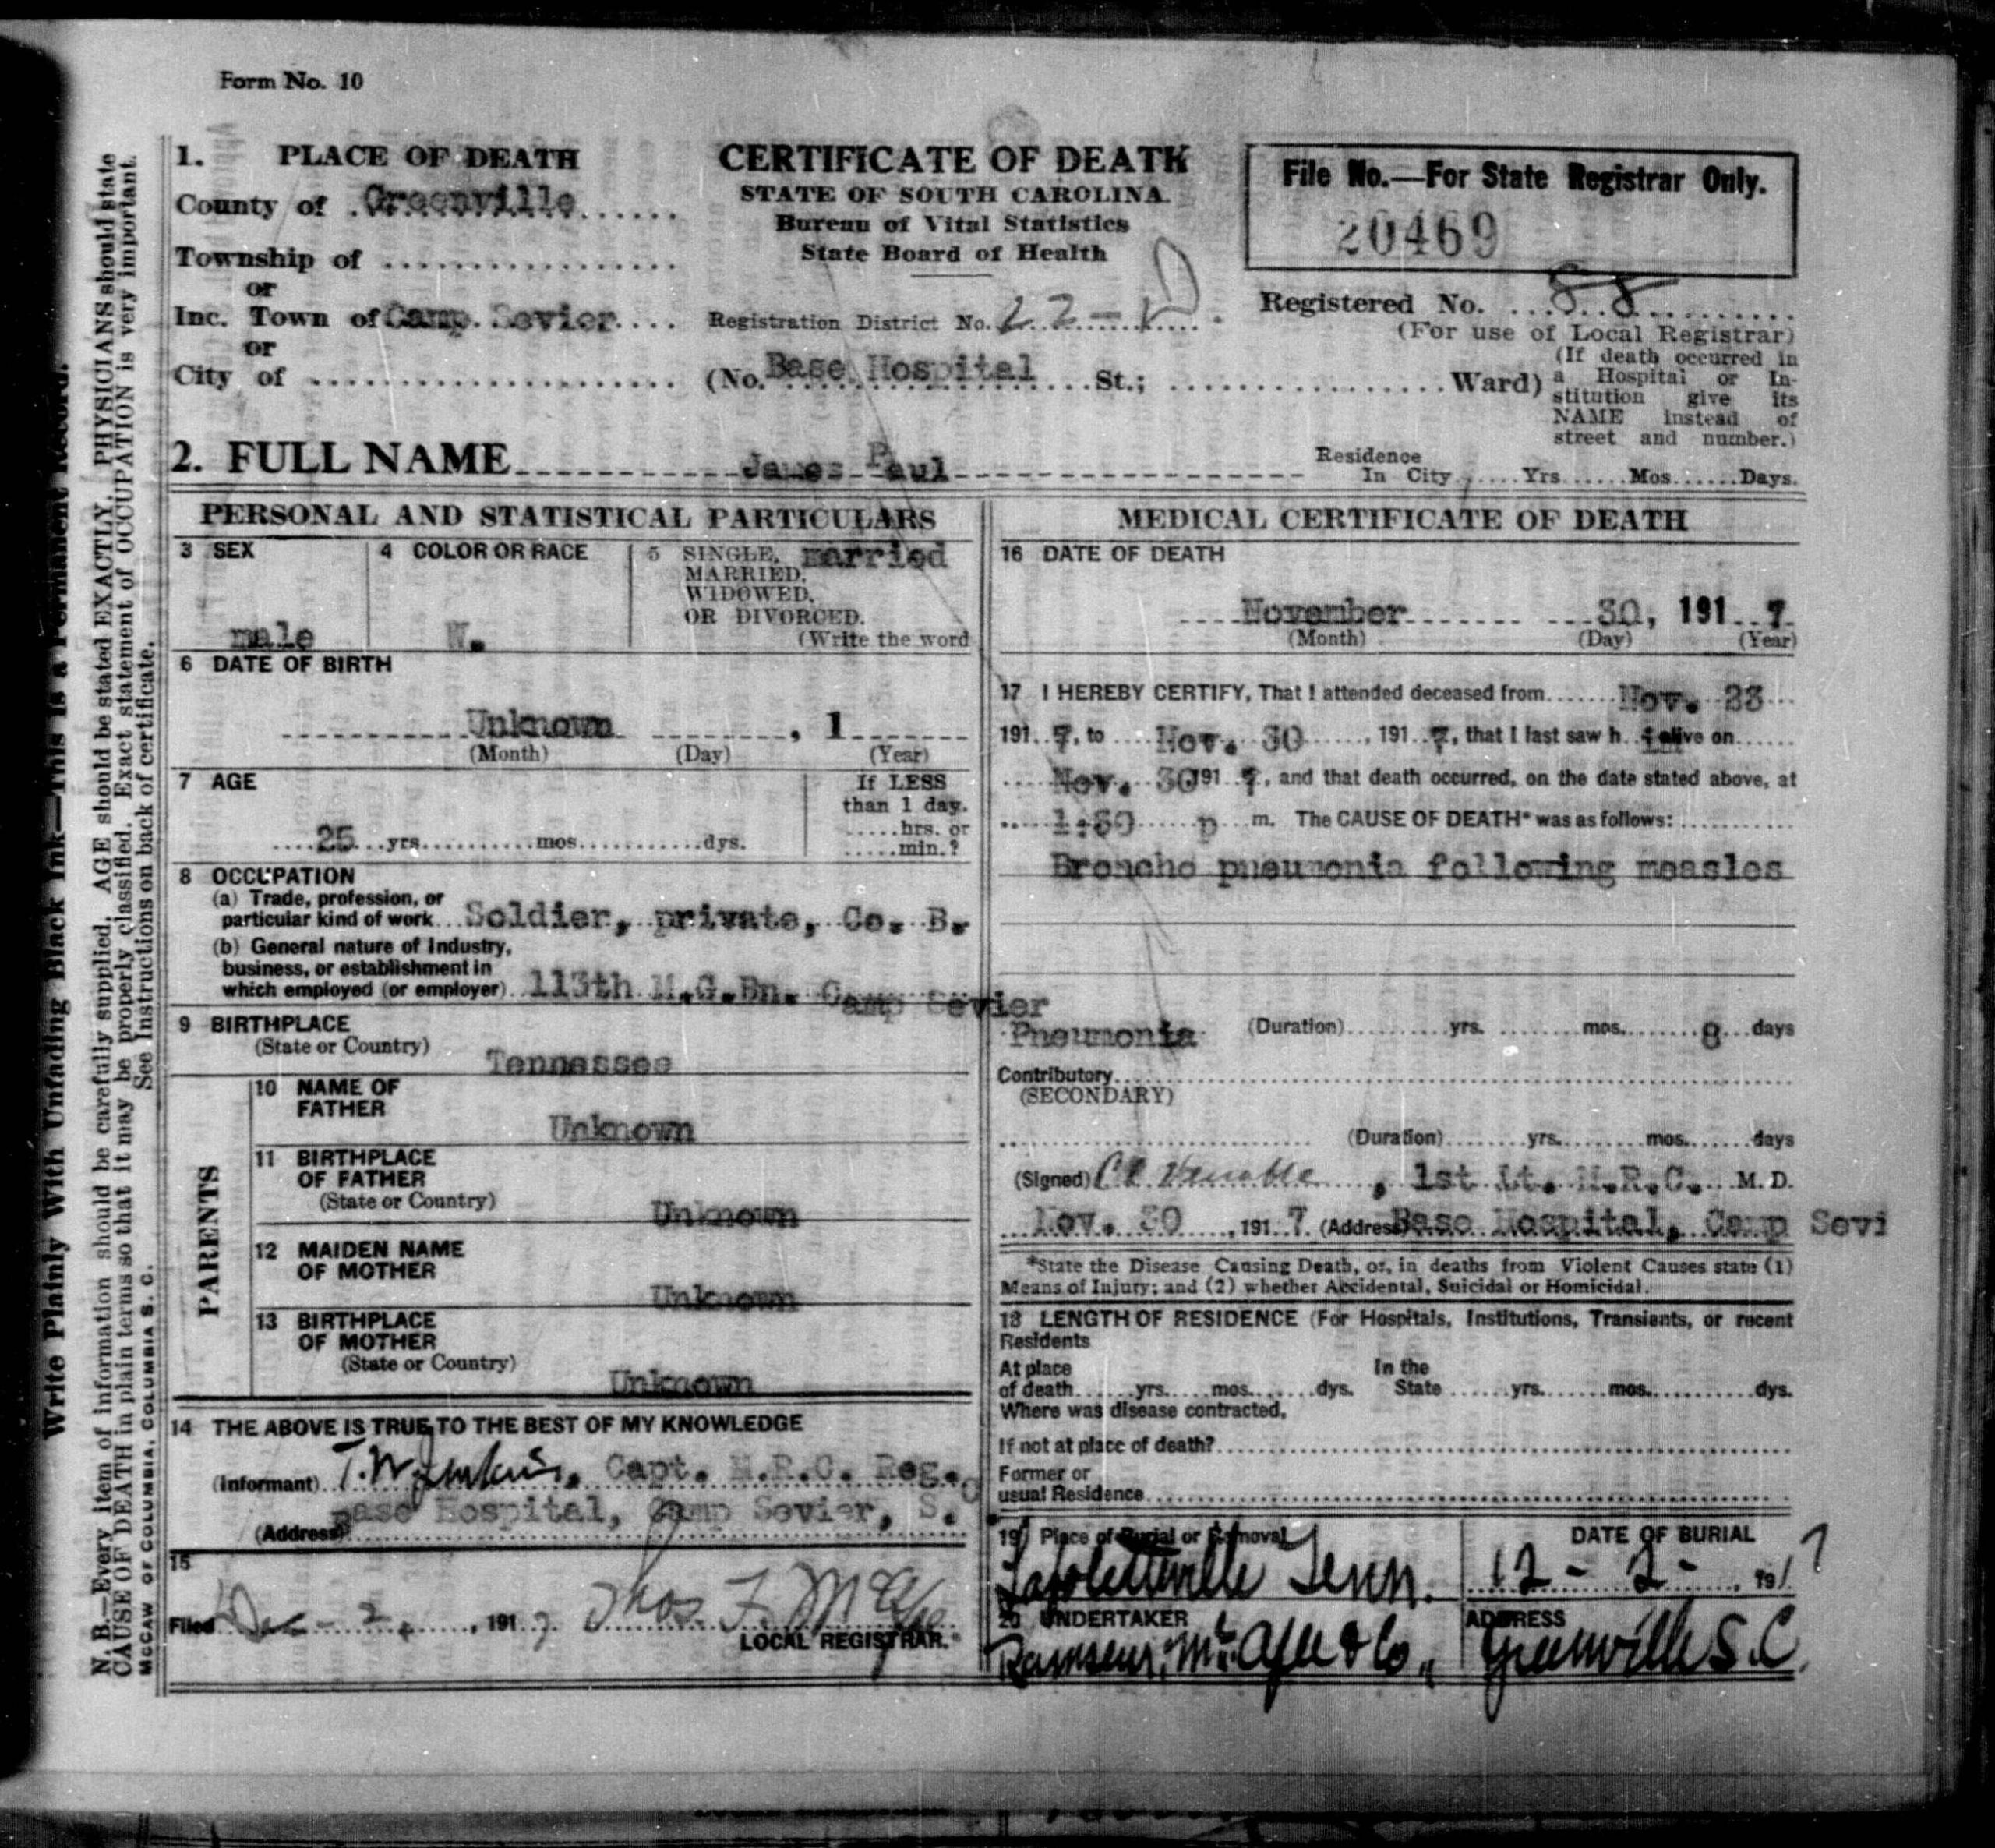 Form No. 10
1. PLACE OF DEATH
County of Greenville
Township of
or
Inc. Town of Camp Sevier
or
City of
CERTIFICATE OF DEATH
STATE OF SOUTH CAROLINA.
Bureau of Vital Statistics
State Board of Health
Registration District No. 22-D
(No. Base Hospital St.; Ward)
File No.—For State Registrar Only.
20469
Registered No. 88
(For use of Local Registrar)
(If death occurred in
a Hospital or In-
stitution give its
NAME instead of
street and number.)
2. FULL NAME James Paul
Residence
In City Yrs Mos Days.
PERSONAL AND STATISTICAL PARTICULARS
3 SEX
male
4 COLOR OR RACE
W.
5 SINGLE, married
MARRIED,
WIDOWED,
OR DIVORCED.
(Write the word
6 DATE OF BIRTH
Unknown , 1
(Month) (Day) (Year)
7 AGE
25 yrs. mos. dys.
If LESS
than 1 day.
hrs. or
min.?
8 OCCUPATION
(a) Trade, profession, or
particular kind of work Soldier, private, Co. B.
(b) General nature of Industry,
business, or establishment in
which employed (or employer) 113th M.G.Bn. Camp Sevier
9 BIRTHPLACE
(State or Country)
Tennessee
PARENTS
10 NAME OF
FATHER
Unknown
11 BIRTHPLACE
OF FATHER
(State or Country)
Unknown
12 MAIDEN NAME
OF MOTHER
Unknown
13 BIRTHPLACE
OF MOTHER
(State or Country)
Unknown
14 THE ABOVE IS TRUE TO THE BEST OF MY KNOWLEDGE
(Informant) T.W. Jenkins, Capt. M.R.C. Reg.
(Address) Base Hospital, Camp Sevier, S.
15
Filed Dec - 2, 1917 Thos. F.
LOCAL REGISTRAR.
MEDICAL CERTIFICATE OF DEATH
16 DATE OF DEATH
November 30, 1917
(Month) (Day) (Year)
17 I HEREBY CERTIFY, That I attended deceased from Nov. 23
1917, to Nov. 30, 1917, that I last saw h alive on
Nov. 30 1917, and that death occurred, on the date stated above, at
1:30 p m. The CAUSE OF DEATH* was as follows:
Broncho pneumonia following measles
Pneumonia (Duration) yrs. mos. 8 days
Contributory
(SECONDARY)
(Duration) yrs. mos. days
(Signed) Venable, 1st Lt. M.R.C. M. D.
Nov. 30, 1917. (Address) Base Hospital, Camp Sevi
*State the Disease Causing Death, or, in deaths from Violent Causes state (1)
Means of Injury; and (2) whether Accidental, Suicidal or Homicidal.
18 LENGTH OF RESIDENCE (For Hospitals, Institutions, Transients, or recent
Residents
At place In the
of death yrs. mos. dys. State yrs. mos. dys.
Where was disease contracted,
If not at place of death?
Former or
usual Residence
19 Place of Burial or Removal
Tenn.
DATE OF BURIAL
12 - 2 - , 1917
20 UNDERTAKER
Ramseur, McAfee & Co.,
ADDRESS
Greenville S.C.
Write Plainly With Unfading Black Ink—This is a Permanent Record.
N. B.—Every item of information should be carefully supplied. AGE should be stated EXACTLY. PHYSICIANS should state
CAUSE OF DEATH in plain terms so that it may be properly classified. Exact statement of OCCUPATION is very important.
See Instructions on back of certificate.
MCCAW OF COLUMBIA, COLUMBIA S. C.